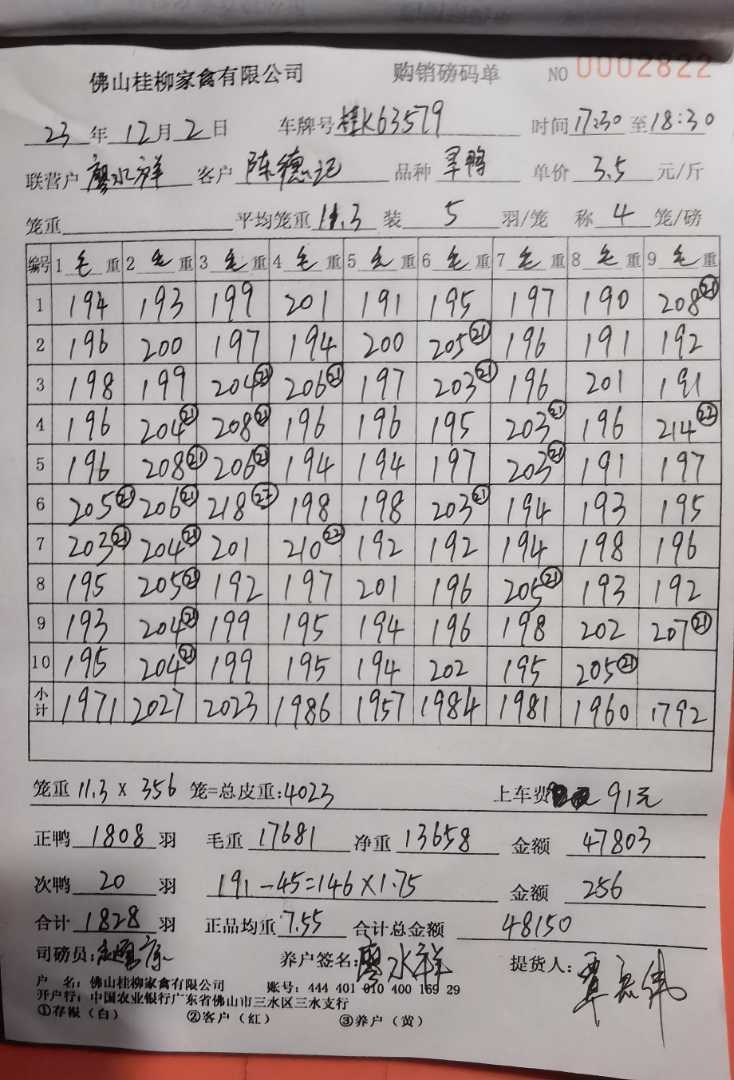 佛山桂柳家禽有限公司 购销磅码单 NO 0002822
23 年 12 月 2 日 车牌号 桂K63579 时间 17:30 至 18:30
联营户 廖水祥 客户 陈德记 品种 旱鸭 单价 3.5 元/斤
笼重 平均笼重 11.3 装 5 羽/笼 称 4 笼/磅
编号 1 毛 重 2 毛 重 3 毛 重 4 毛 重 5 毛 重 6 毛 重 7 毛 重 8 毛 重 9 毛 重
1 194 193 199 201 191 195 197 190 208㉑
2 196 200 197 194 200 205㉑ 196 191 192
3 198 199 204㉑ 206㉑ 197 203㉑ 196 201 191
4 196 204㉑ 208㉑ 196 196 195 203㉑ 196 214㉒
5 196 208㉑ 206㉑ 194 194 197 203㉑ 191 197
6 205㉑ 206㉑ 218㉒ 198 198 203㉑ 194 193 195
7 203㉑ 204㉑ 201 210㉒ 192 192 194 198 196
8 195 205㉑ 192 197 201 196 205㉑ 193 192
9 193 204㉑ 199 195 194 196 198 202 207㉑
10 195 204㉑ 199 195 194 202 195 205㉑
小计 1971 2027 2023 1986 1957 1984 1981 1960 1792
笼重 11.3 x 356 笼=总皮重:4023 上车费 91元
正鸭 1808 羽 毛重 17681 净重 13658 金额 47803
次鸭 20 羽 191-45=146×1.75 金额 256
合计 1828 羽 正品均重 7.55 合计总金额 48150
司磅员: 养户签名:廖水祥 提货人:
户 名:佛山桂柳家禽有限公司 账号:444 401 010 400 169 29
开户行:中国农业银行广东省佛山市三水区三水支行
①存根(白) ②客户(红) ③养户(黄)